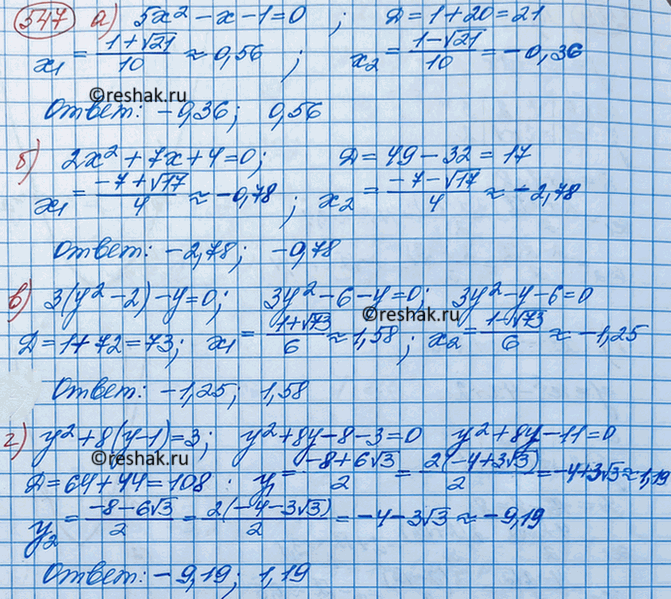 547 а) 5x² - x - 1 = 0 ; D = 1 + 20 = 21
x₁ = (1+√21)/10 ≈ 0,56 ; x₂ = (1-√21)/10 = -0,36
©reshak.ru
Ответ: -0,36; 0,56
б) 2x² + 7x + 4 = 0; D = 49 - 32 = 17
x₁ = (-7+√17)/4 ≈ -0,78 ; x₂ = (-7-√17)/4 ≈ -2,78
Ответ: -2,78; -0,78
в) 3(y² - 2) - y = 0; 3y² - 6 - y = 0; 3y² - y - 6 = 0
©reshak.ru
D = 1 + 72 = 73; x₁ = (1+√73)/6 ≈ 1,58; x₂ = (1-√73)/6 ≈ -1,25
Ответ: -1,25; 1,58
г) y² + 8(y-1) = 3; y² + 8y - 8 - 3 = 0 y² + 8y - 11 = 0
©reshak.ru
D = 64 + 44 = 108 . y₁ = (-8+6√3)/2 = 2(-4+3√3)/2 = -4+3√3 ≈ 1,19
y₂ = (-8-6√3)/2 = 2(-4-3√3)/2 = -4-3√3 ≈ -9,19
Ответ: -9,19; 1,19